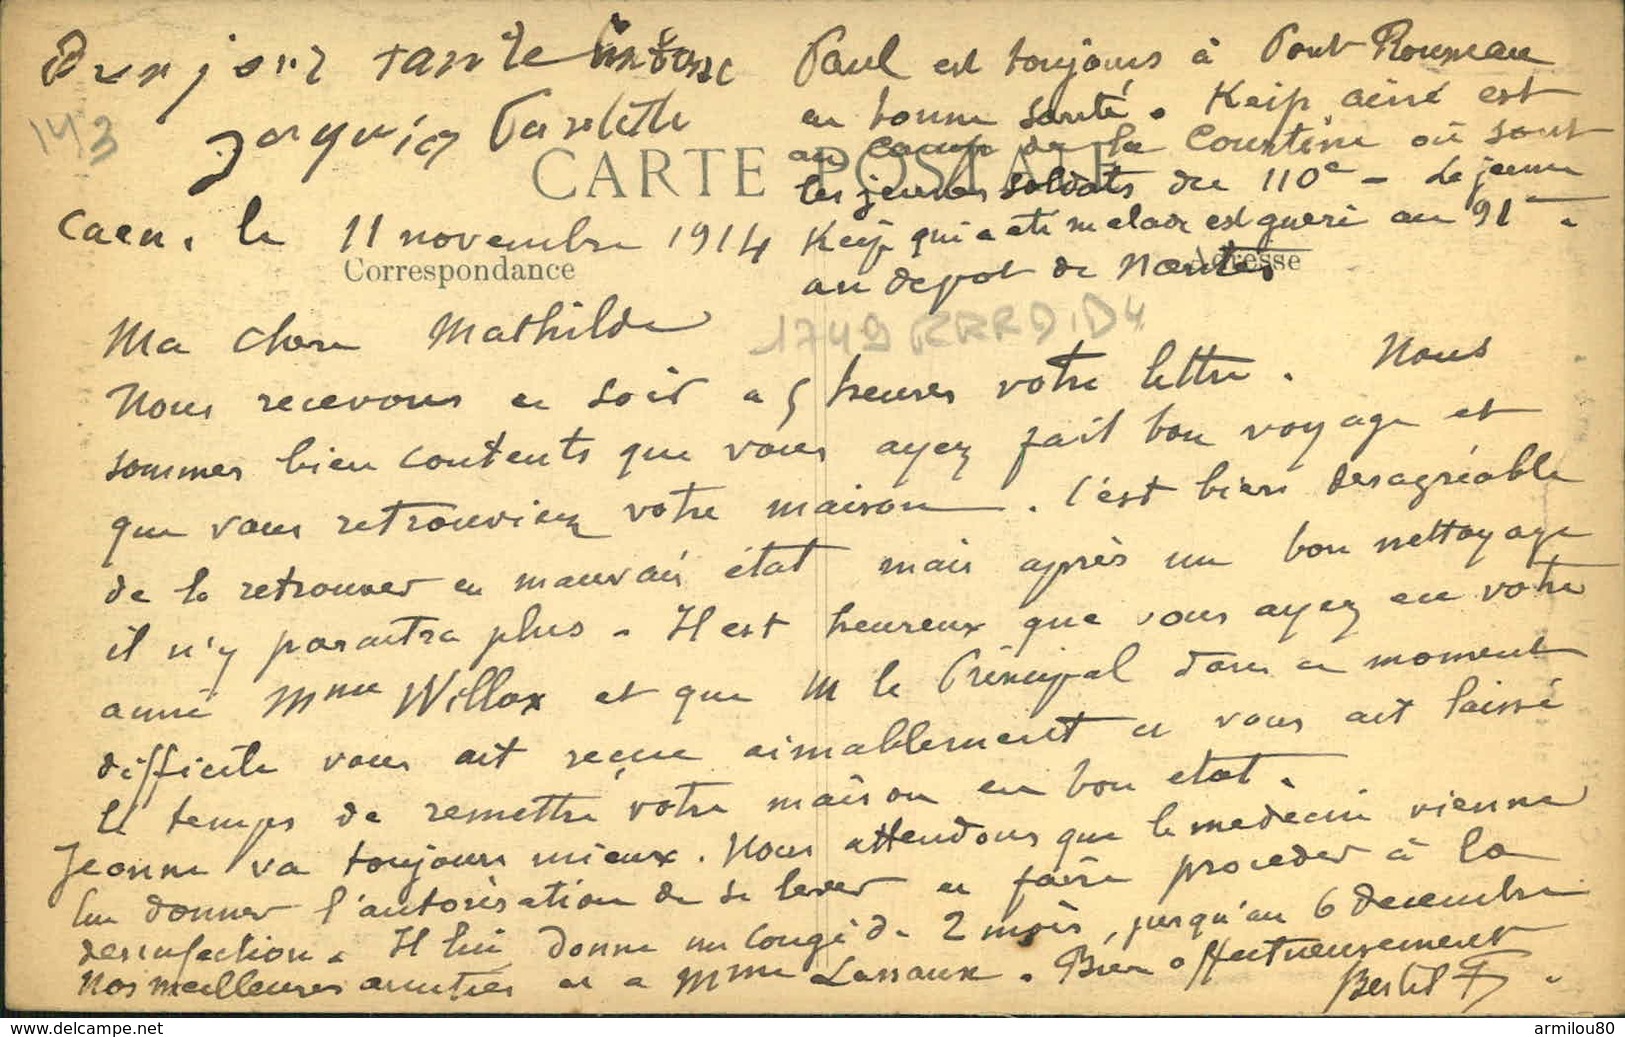 Bonjour tante
143
CARTE POSTALE
Caen, le 11 novembre 1914
Correspondance
Ma chère Mathilde
Nous recevons ce soir a 5 heures votre lettre. Nous
sommes bien contents que vous ayez fait bon voyage et
que vous retrouviez votre maison. C'est bien desagréable
de la retrouver en mauvais état mais après un bon nettoyage
il n'y paraitra plus - Il est heureux que vous ayez eu votre
amie Mme Willox et que M le Principal dans ce moment
difficile vous ait reçue aimablement et vous ait laissé
le temps de remettre votre maison en bon etat.
Jeanne va toujours mieux. Nous attendons que le medecin vienne
lui donner l'autorisation de se lever et faire proceder à la
desinfection. Il lui donne un congé de 2 mois, jusqu'au 6 decembre
Nos meilleures amitiés et a Mme Lassaux. Bien affectueusement
Paul est toujours à Pont Rousseau
en bonne santé. Keip ainé est
au camp de la Courtine où sont
les jeunes soldats du 110e - Le jeune
Keip qui a eté malade est gueri au 91e -
au depot de Nantes
Adresse
armilou80
www.delcampe.net